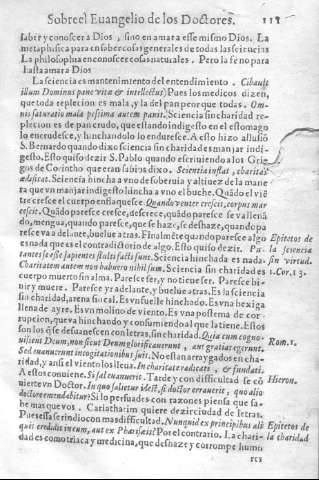 Sobre el Euangelio de los Doctores. 112
saber y conoscer a Dios, sino en amar a esse mismo Dios. La
metaphisica para en saber cosas generales de todas las sciencias
La philosophia en conoscer cosas naturales. Pero la fe no para
hasta amar a Dios
La sciencia es mantenimiento del entendimiento. Cibauit
illum Dominus pane vitæ & intellectus) Pues los medicos dizen,
que toda replecion es mala, y la del pan peor que todas. Om-
nis saturatio mala pessima autem panis. Sciencia sin charidad re-
plecion es de pan crudo, que estando indigesto en el estomago
lo encrudesce, y hinchandolo lo enduresce. A esto hizo allusiõ
S. Bernardo quando dixo sciencia sin charidad es manjar indi-
gesto. Esto quiso dezir S. Pablo quando escriuiendo a los Grie-
gos de Corintho que eran sabios dixo. Scientia inflat, charitas
ædificat. Sciencia hincha a vno de soberuia y altiuez de la mane
ra que vn manjar indigesto hincha a vno el buche. Quãdo el viẽ
tre cresce el cuerpo enflaquesce. Quando venter crescit, corpus mar
cescit. Quãdo paresce cresce, descrece, quãdo paresce se va llenã
do, mengua, quando paresce, que se haze, se deshaze, quando pa
resce va adelante, buelue atras. Finalmẽte quando paresce algo
es nada que es el contradictorio de algo. Esto quiso dezir. Pu-
tantes se esse sapientes stulti facti sunt. Sciencia hinchada es nada
Charitatem autem non habuero nihil sum. Sciencia sin charidad es
cuerpo muerto sin alma. Paresce ser, y no tiene ser. Paresce bi-
uir y muere. Paresce yr adelante, y buelue atras. Es la sciencia
sin charidad, arena sin cal. Es vn fuelle hinchado. Es vna bexiga
llena de ayre. Es vn molino de viento. Es vna postema de cor-
rupcion, que va hinchando y consumiendo al que la tiene. Estos
son los q̃ se desuanescen con letras, sin charidad. Quia cum cogno-
uissent Deum, non sicut Deum glorificauerunt, aut gratias egerunt.
Sed euanuerunt in cogitationibus suis. No estan arraygados en cha-
ridad, y assi el viento los lleua. In charitate radicati, & fundati.
A estos conuiene. Si sal euanuerit. Tarde y con difficultad se cõ
uierte vn Doctor. In quo salietur idest, si doctor errauerit, quo alio
doctore emendabitur? Si lo persuades con razones piensa que sa-
be mas que vos. Cariatharim quiere dezir ciudad de letras.
Pues essa se rindio con mas difficultad. Nunquid ex principibus ali
quis credidit in eum, aut ex Pharisæis? Por el contrario. La chari-
dad es como triaca y medicina, que deshaze y corrompe humo
res
Epitetos de
la sciencia
sin virtud.
1. Cor. 13.
Rom. 1.
Hieron.
Epitetos de
la charidad